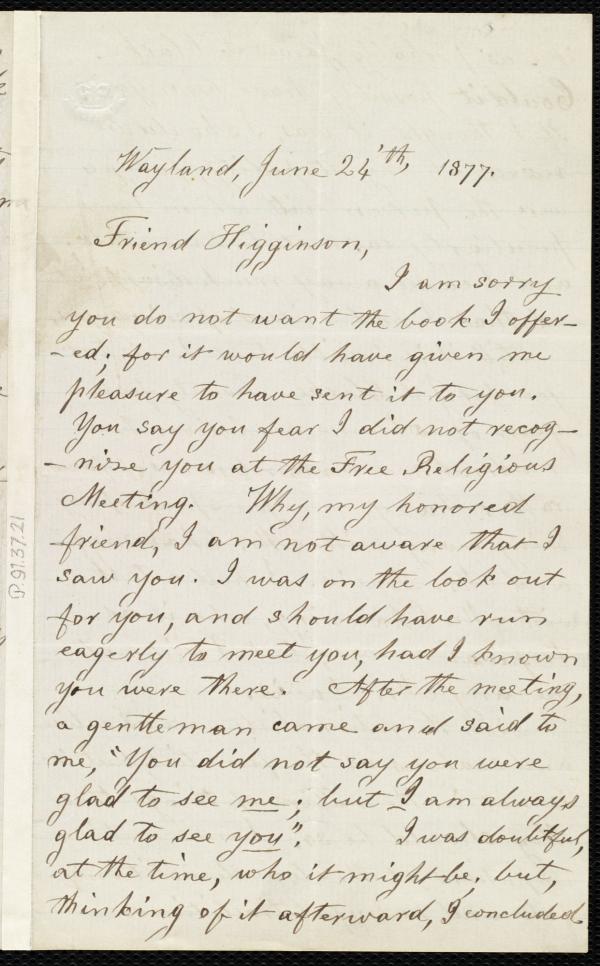 Wayland, June 24'th, 1877.
Friend Higginson,
I am sorry
you do not want the book I offer-
-ed; for it would have given me
pleasure to have sent it to you.
You say you fear I did not recog-
-nise you at the Free Religious
Meeting. Why, my honored
friend, I am not aware that I
saw you. I was on the look out
for you, and should have run
eagerly to meet you, had I known
you were there. After the meeting,
a gentleman came and said to
me, "You did not say you were
glad to see me; but I am always
glad to see you". I was doubtful,
at the time, who it might be; but,
thinking of it afterward, I concluded
P.91.37.21